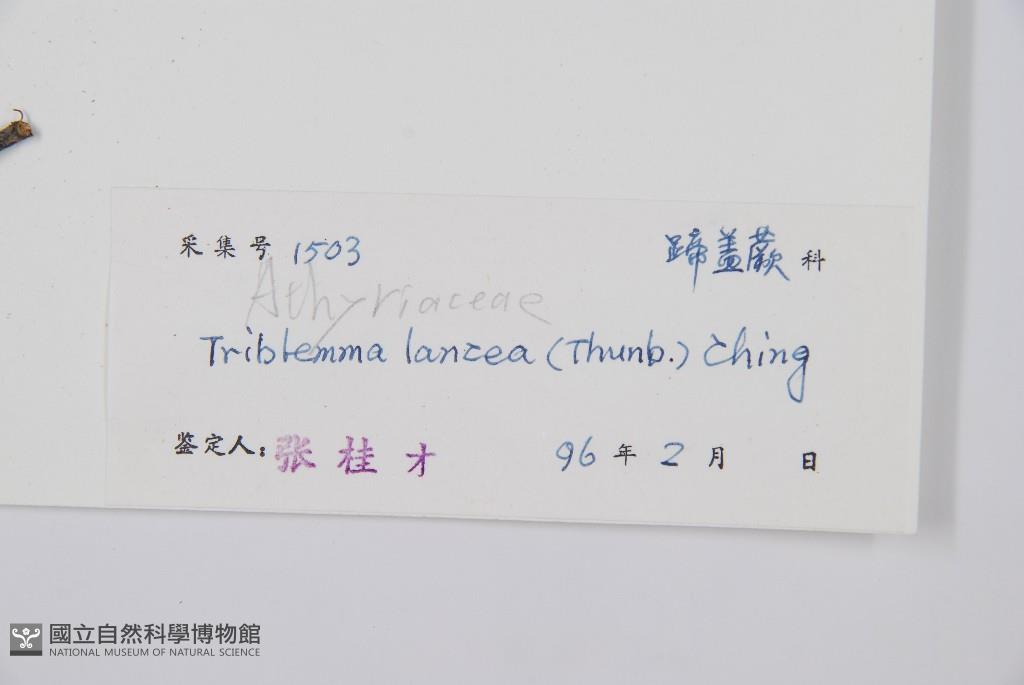 采集号 1503 蹄盖蕨 科
Athyriaceae
Triblemma lancea (Thunb.) Ching
鉴定人: 张桂才 96 年 2 月 日
國立自然科學博物館
NATIONAL MUSEUM OF NATURAL SCIENCE